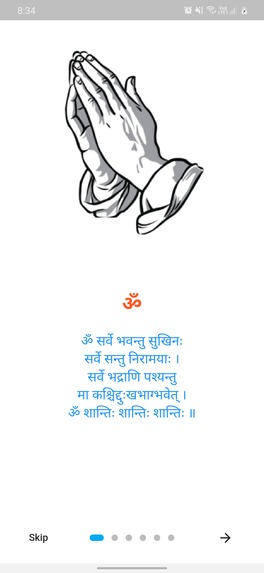 8:34
ॐ
ॐ सर्वे भवन्तु सुखिनः
सर्वे सन्तु निरामयाः ।
सर्वे भद्राणि पश्यन्तु
मा कश्चिद्दुःखभाग्भवेत् ।
ॐ शान्तिः शान्तिः शान्तिः ॥
Skip